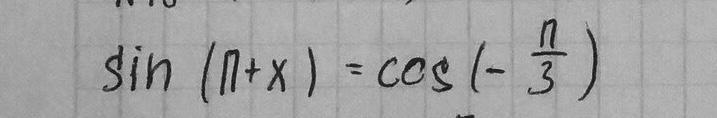 sin (π+x) = cos(- π/3)